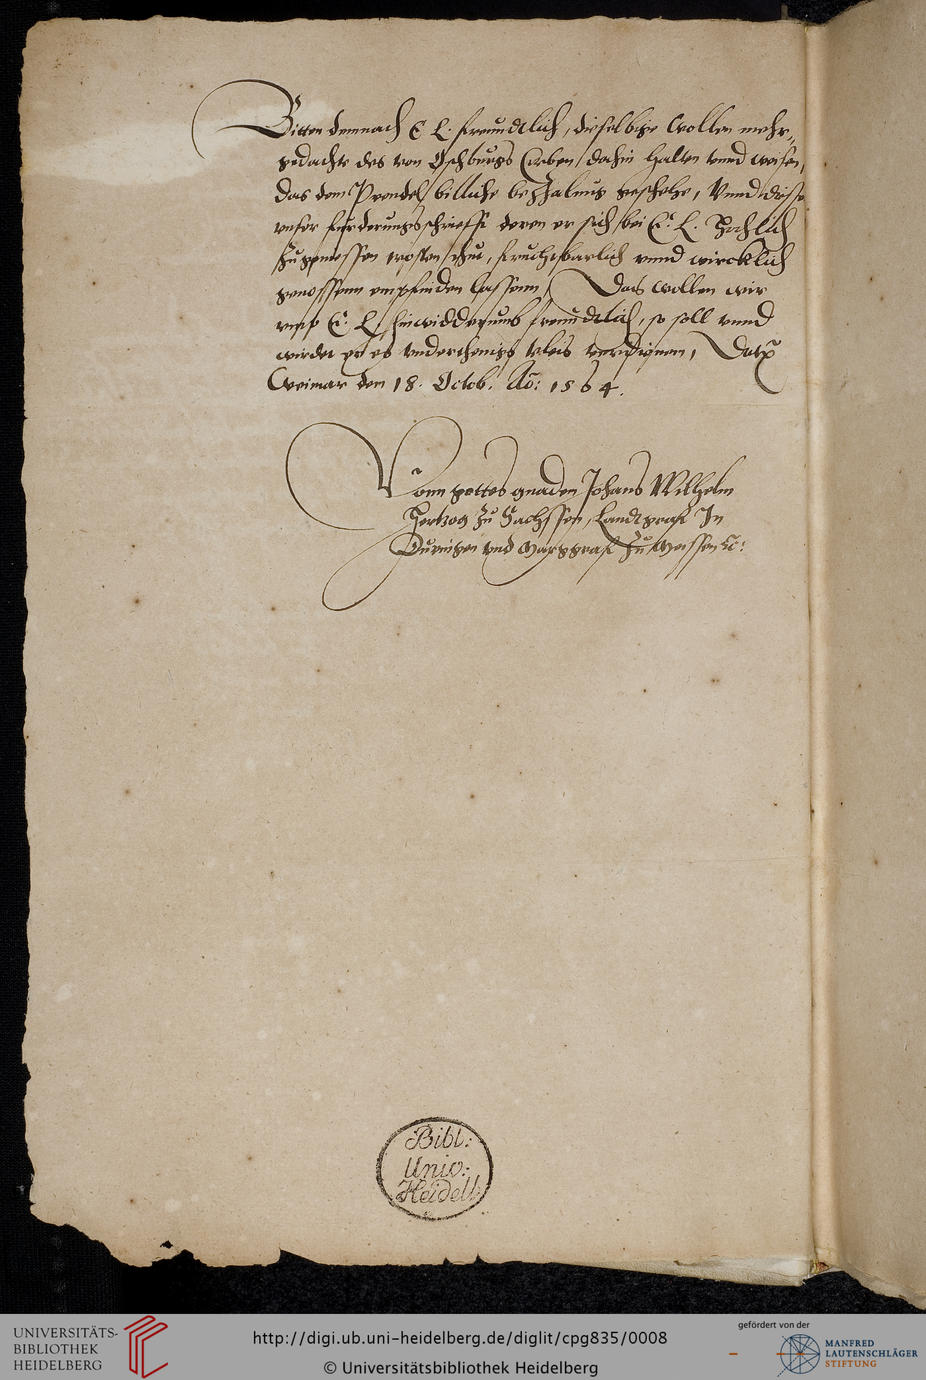 Bitten demnach E L. freundtlich, dieselbige wollen mehr-
gedachts des von Oschburgs Erben, dahin halten unnd weisen,
das dem Prendel billiche bezhalung geschehe, Unnd disse
unser furderungsschriefft deren er sich bei E. L. Hochlich
zugeniessen trosten thut, fruchtbarlich unnd wircklich
genossenn empfinden lassenn, Das wollen wir
umb E. L. hinwidderumb freundtlich, so soll unnd
wirdet er es underthenigs vleis verdienen, Dat
Weimar den 18. Octob. Ao: 1564.
Vonn gottes gnaden Johans Wilhelm
Hertzog zu Sachssen, Landtgraf In
Duringen und Marggraf zu Meissen ec:
Bibl:
Univ:
Heidelb.
UNIVERSITÄTS-
BIBLIOTHEK
HEIDELBERG
http://digi.ub.uni-heidelberg.de/diglit/cpg835/0008
© Universitätsbibliothek Heidelberg
gefördert von der
MANFRED
LAUTENSCHLÄGER
STIFTUNG